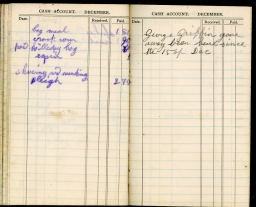 CASH ACCOUNT. DECEMBER.
Date. Received. Paid.
bag meal
crack corn
killing hog
shoeing and
sleigh 2.70
CASH ACCOUNT. DECEMBER.
Date. Received. Paid.
George Griffin gone
away been here since
the 15 of Dec